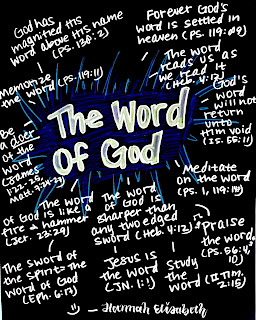 God has
magnified His
word above His name
(PS. 138:2)
Forever God's
word is settled in
heaven (PS. 119:89)
The word
reads us as
we read it
(Heb. 4:12)
memorize
the word (PS. 119:11)
God's
word will
not
return
unto
Him void
(IS. 55:11)
The Word
Of God
Be
a doer
of the
word
(James
1:22-25,
Matt. 7:24-29)
Meditate
on the word
(PS. 1, 119:14)
The word
of God is like a
fire & hammer
(Jer. 23:29)
The word
of God is
sharper than
any two edged
sword (Heb. 4:12)
Praise
the word
(PS. 56:4,
10)
The sword of
the Spirit = the
word of God
(Eph. 6:17)
Jesus is
the word
(JN. 1:1)
Study
the
word (II Tim.
2:15)
— Hannah Elizabeth